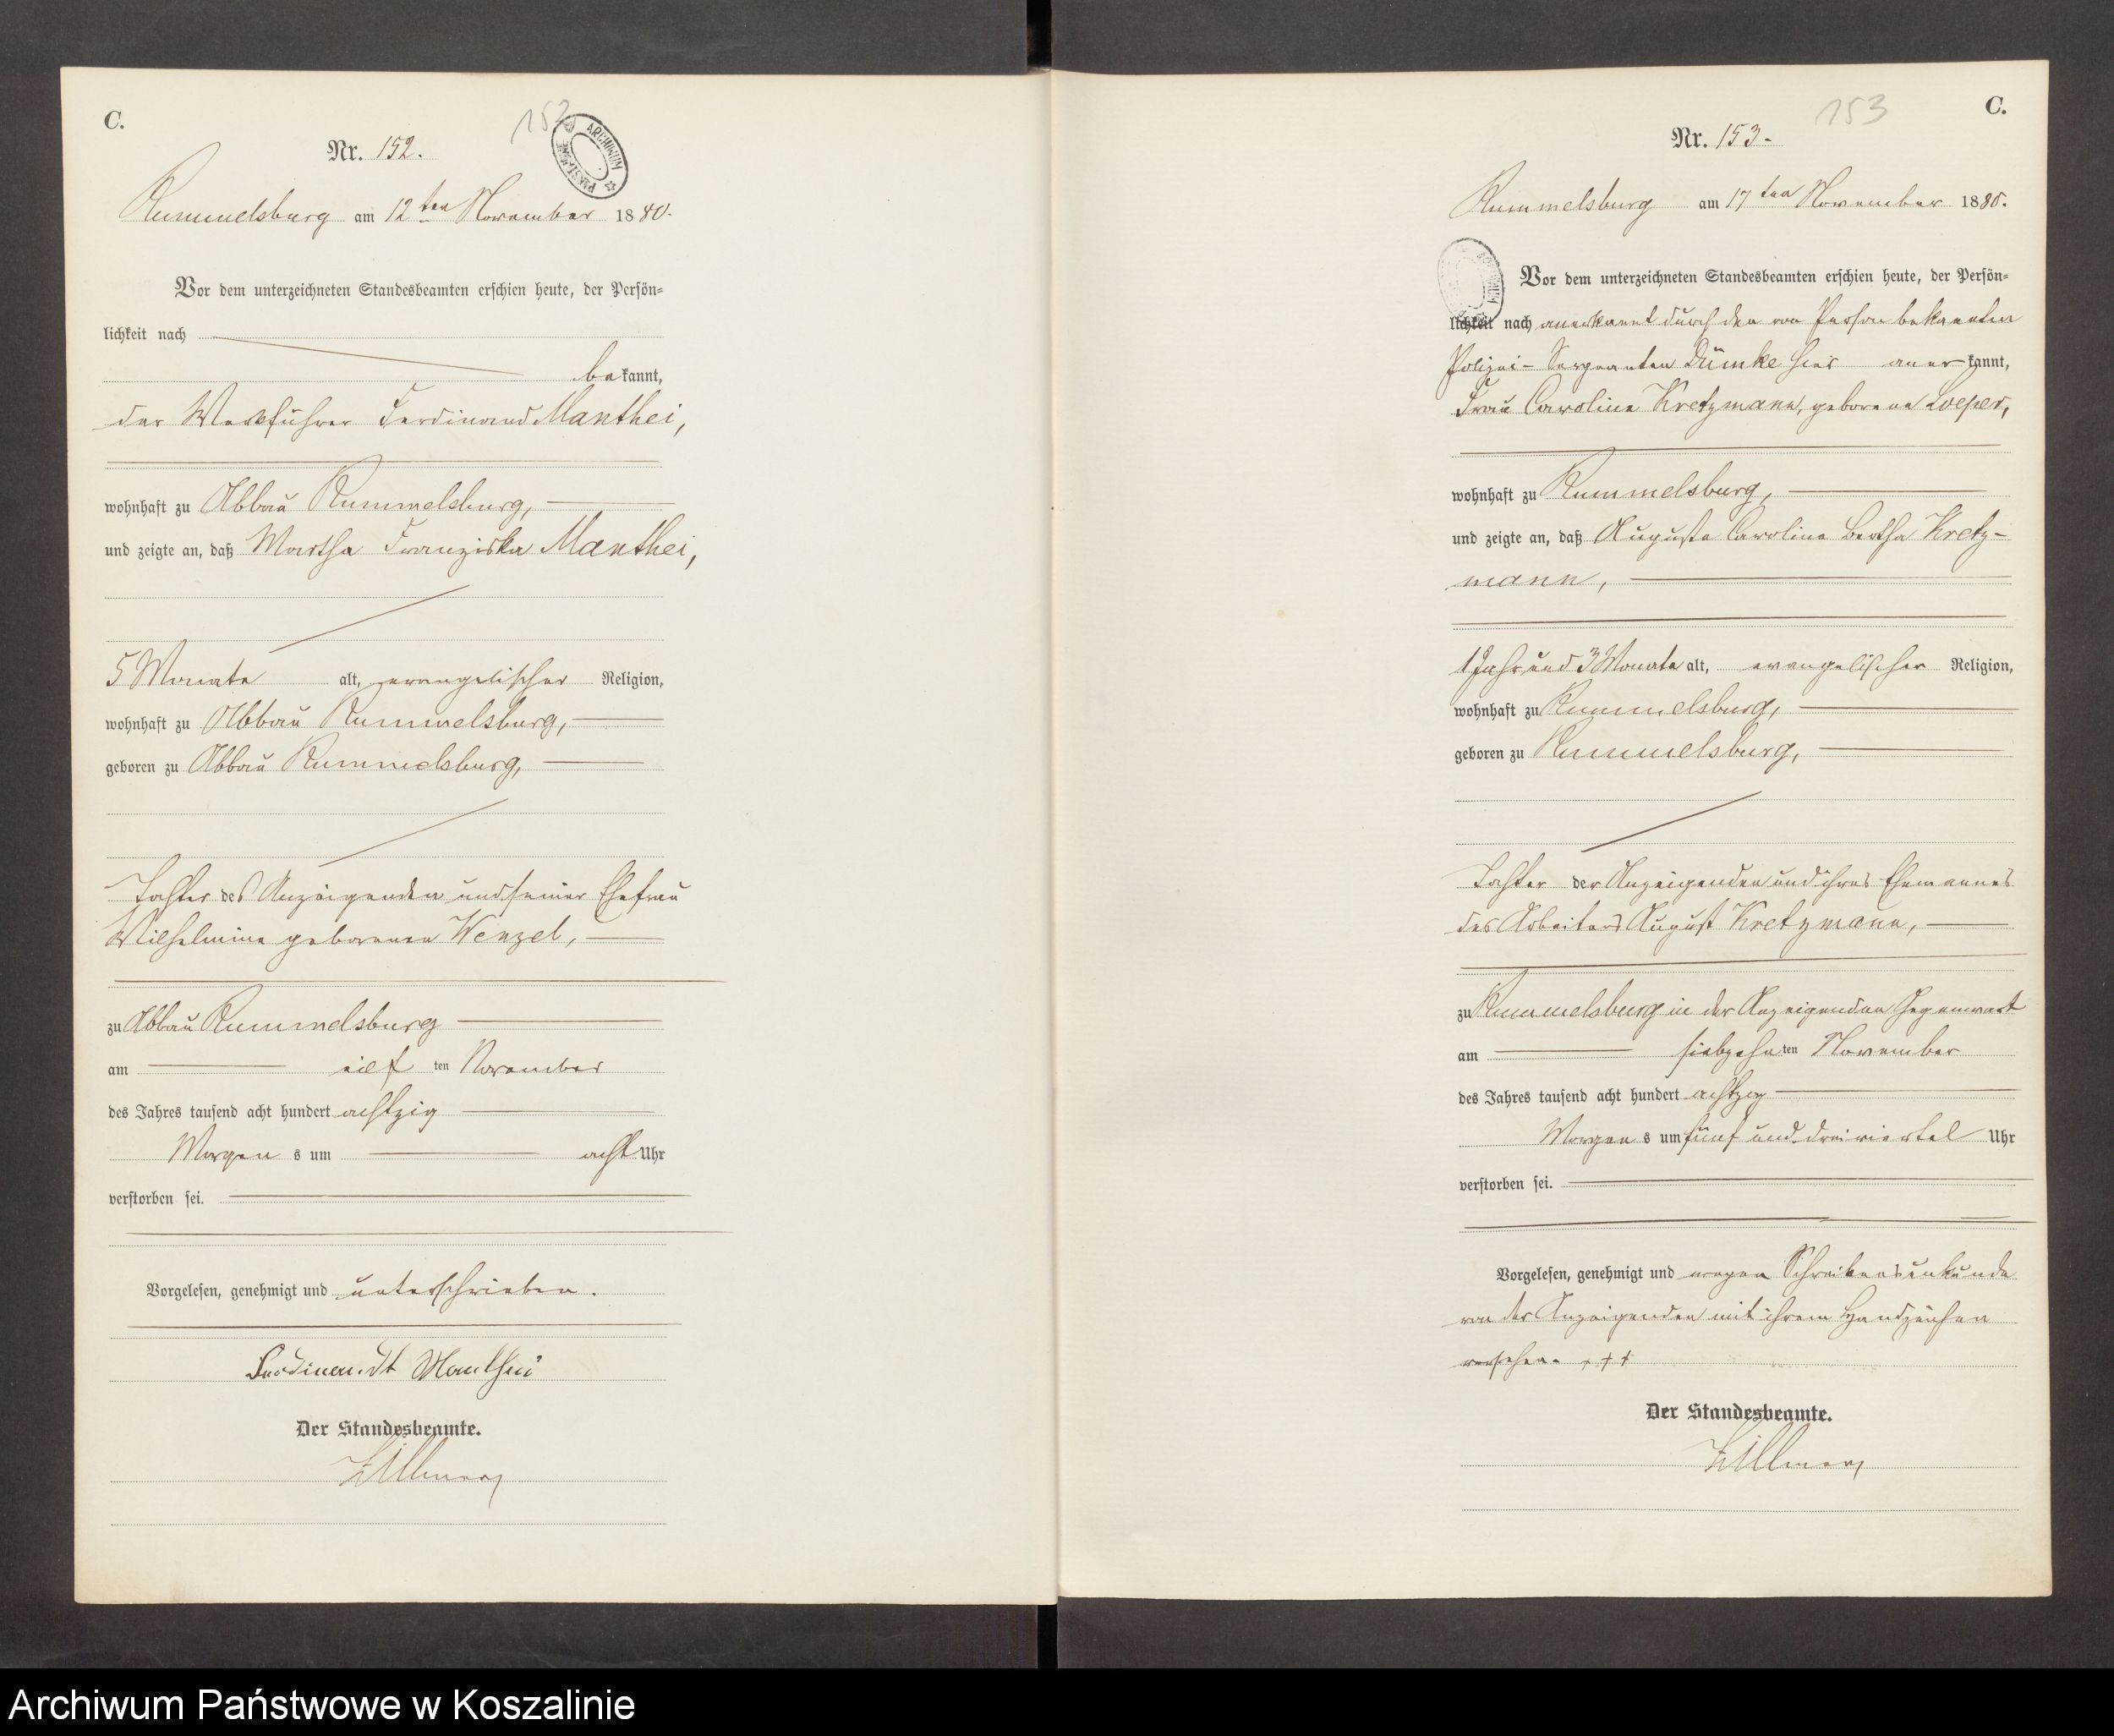 C.
152
ARCHIWUM
Nr. 152.
Rummelsburg am 12ten November 1880.
Vor dem unterzeichneten Standesbeamten erschien heute, der Persön=
lichkeit nach
bekannt,
der Werkführer Ferdinand Manthei,
wohnhaft zu Abbau Rummelsburg,
und zeigte an, daß Martha Franziska Manthei,
5 Monate alt, evangelischer Religion,
wohnhaft zu Abbau Rummelsburg,
geboren zu Abbau Rummelsburg,
Tochter des Anzeigenden und seiner Ehefrau
Wilhelmine geborenen Wenzel,
zu Abbau Rummelsburg
am eilf ten November
des Jahres tausend acht hundert achtzig
Morgen s um acht Uhr
verstorben sei.
Vorgelesen, genehmigt und unterschrieben.
Ferdinandt Manthei
Der Standesbeamte.
153
C.
Nr. 153.
Rummelsburg am 17ten November 1880.
Vor dem unterzeichneten Standesbeamten erschien heute, der Persön=
lichkeit nach anerkannt durch den von Person bekannten
Polizei-Sergeanten Dümke hier anerkannt,
Frau Caroline Kretzmann, geborene Loeper,
wohnhaft zu Rummelsburg,
und zeigte an, daß Auguste Caroline Bertha Kretz-
mann,
1 Jahr und 3 Monate alt, evangelischer Religion,
wohnhaft zu Rummelsburg,
geboren zu Rummelsburg,
Tochter der Anzeigenden und ihres Ehemannes
des Arbeiters August Kretzmann,
zu Rummelsburg in der Anzeigenden Gegenwart
am siebzehn ten November
des Jahres tausend acht hundert achtzig
Morgen s um fünf und dreiviertel Uhr
verstorben sei.
Vorgelesen, genehmigt und wegen Schreibensunkunde
von der Anzeigenden mit ihrem Handzeichen
versehen. +++
Der Standesbeamte.
Archiwum Państwowe w Koszalinie